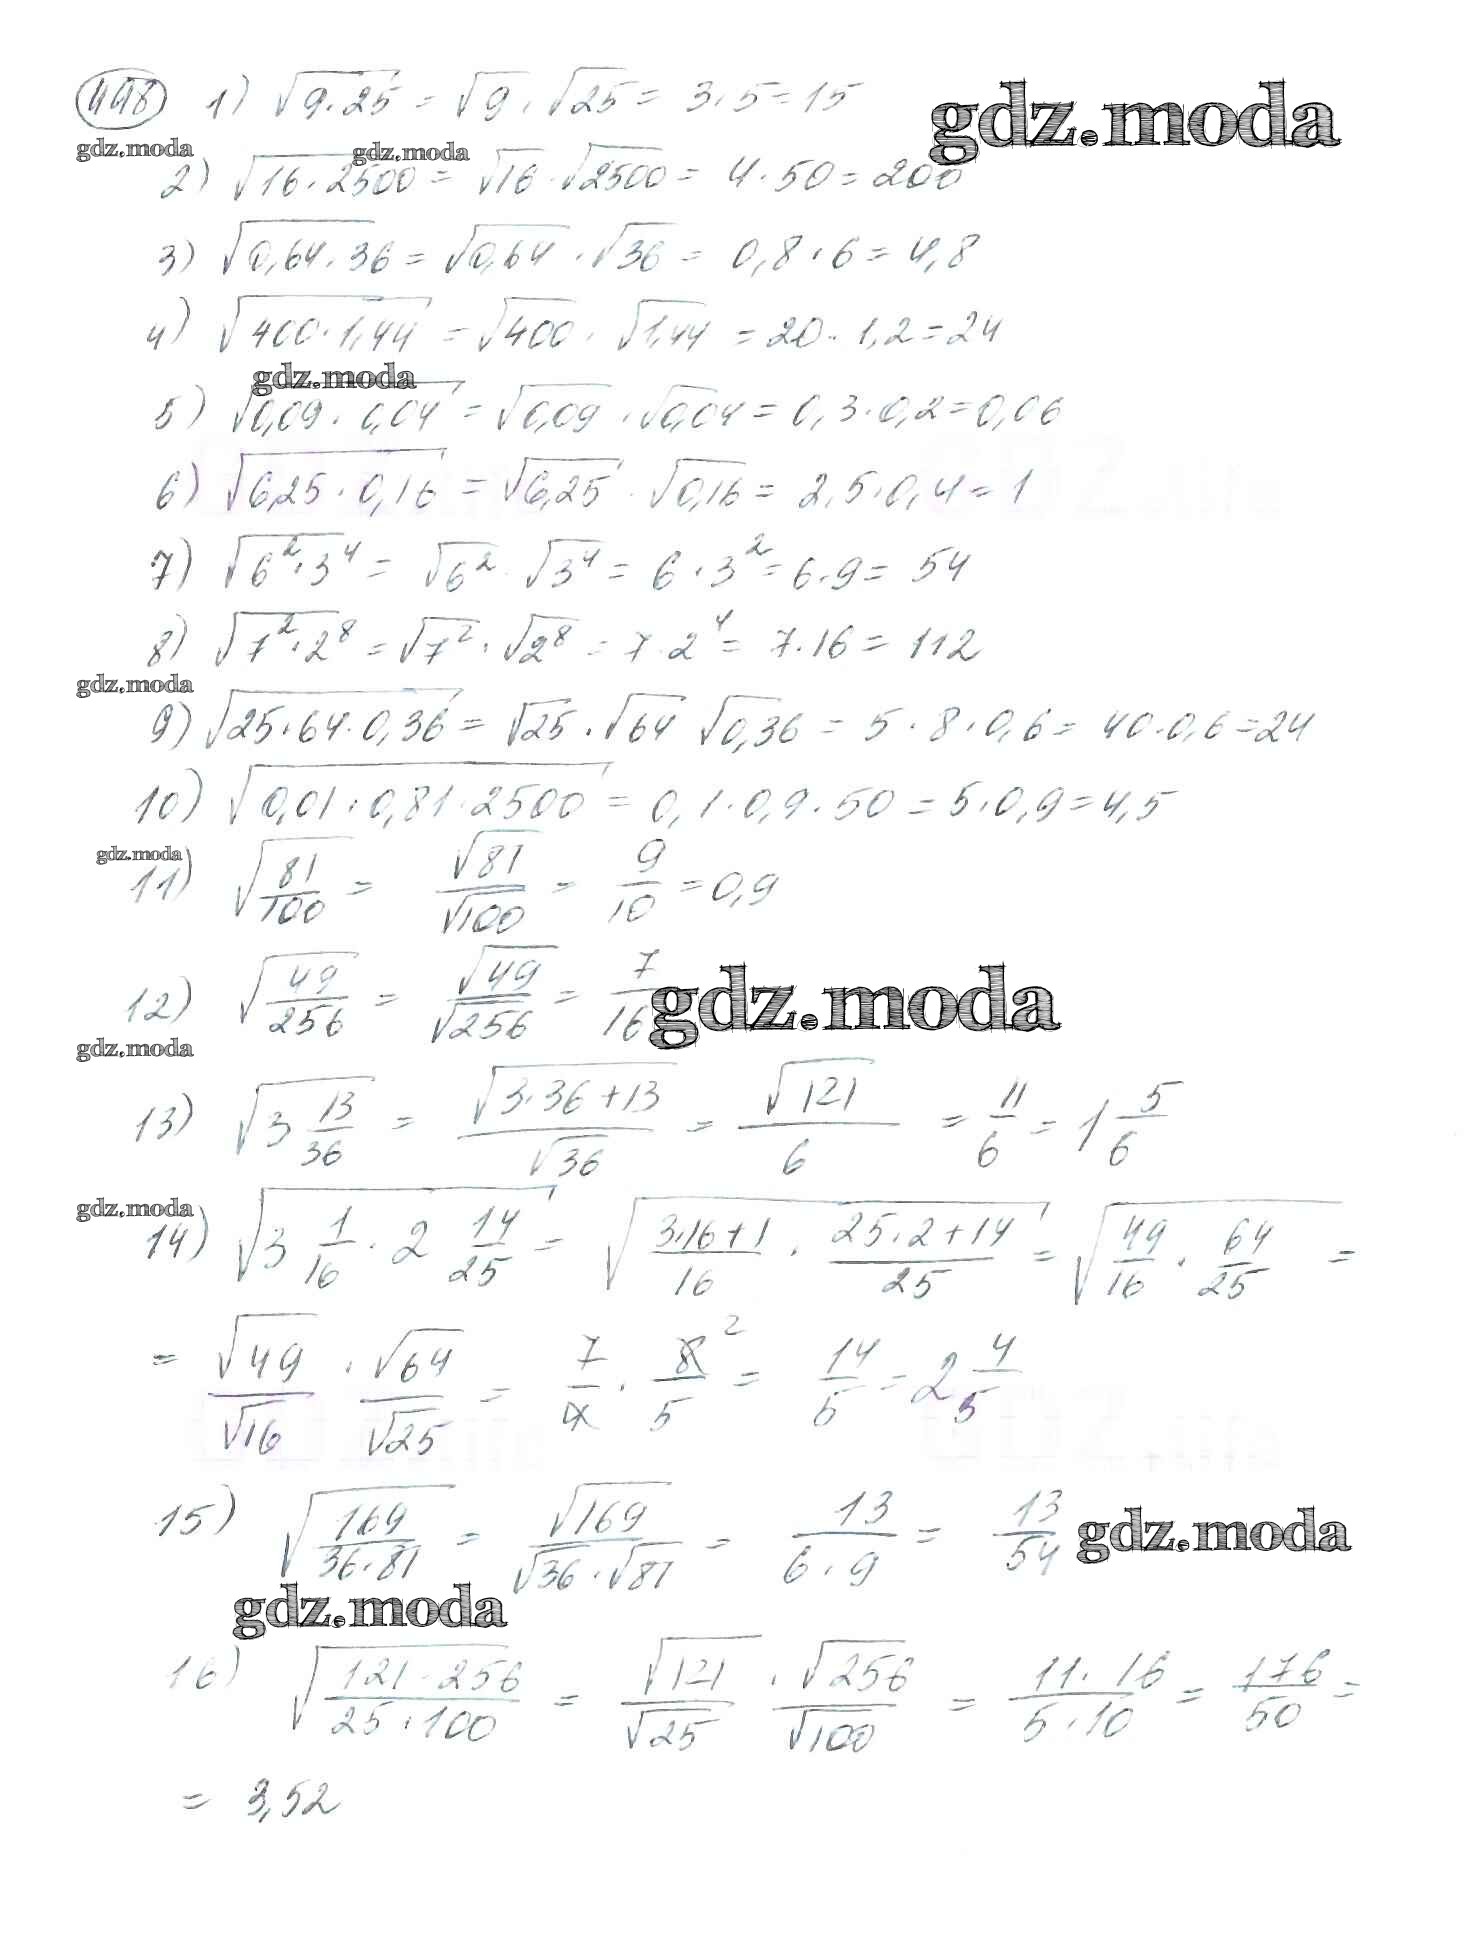 448 1) √(9·25) = √9 · √25 = 3·5 = 15
gdz.moda
gdz.moda gdz.moda
2) √(16·2500) = √16 · √2500 = 4·50 = 200
3) √(0,64·36) = √0,64 · √36 = 0,8·6 = 4,8
4) √(400·1,44) = √400 · √1,44 = 20·1,2 = 24
gdz.moda
5) √(0,09·0,04) = √0,09 · √0,04 = 0,3·0,2 = 0,06
6) √(6,25·0,16) = √6,25 · √0,16 = 2,5·0,4 = 1
7) √(6²·3⁴) = √6² · √3⁴ = 6·3² = 6·9 = 54
8) √(7²·2⁸) = √7² · √2⁸ = 7·2⁴ = 7·16 = 112
gdz.moda
9) √(25·64·0,36) = √25 · √64 √0,36 = 5·8·0,6 = 40·0,6 = 24
10) √(0,01·0,81·2500) = 0,1·0,9·50 = 5·0,9 = 4,5
gdz.moda
11) √(81/100) = √81/√100 = 9/10 = 0,9
12) √(49/256) = √49/√256 = 7/16
gdz.moda
gdz.moda
13) √(3 13/36) = √(3·36+13)/√36 = √121/6 = 11/6 = 1 5/6
gdz.moda
14) √(3 1/16 · 2 14/25) = √((3·16+1)/16 · (25·2+14)/25) = √(49/16 · 64/25) =
= √49/√16 · √64/√25 = 7/4 · 8²/5 = 14/5 = 2 4/5
15) √(169/(36·81)) = √169/(√36·√81) = 13/(6·9) = 13/54
gdz.moda
gdz.moda
16) √((121·256)/(25·100)) = √121/√25 · √256/√100 = (11·16)/(5·10) = 176/50 =
= 3,52